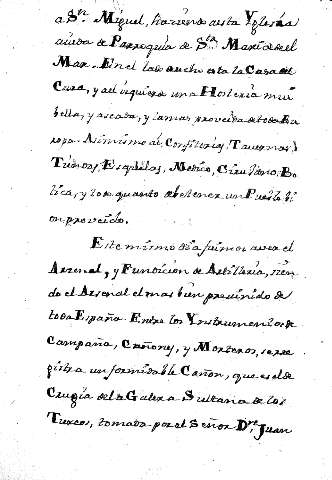 a Sⁿ. Miguel, haviendo esta Yglesia
aiuda de Parroquia de Sᵗᵃ. Maria del
Mar. En el lado esta la Casa del
Cura, y a la izquierda una Hosteria mui
bella, y aseada, y la mas proveida de toda Eu
ropa. Asimismo ai Confiteria, Tavernas,
Tiendas, Medico, Cirujano, Bo
tica, y todo quanto debe tener un Pueblo bi
en proveido.
Este mismo dia fuimos a ver el
Arsenal, y Fundicion de Artilleria, sien
do el Arsenal el mas bien prevenido de
toda España. Entre los Ynstrumentos de
Campaña, Cañones, y Morteros, se re
gistra un formidable Cañon, que es el de
Crugia de la Galera Sultana de los
Turcos, tomada por el Señor Dⁿ. Juan